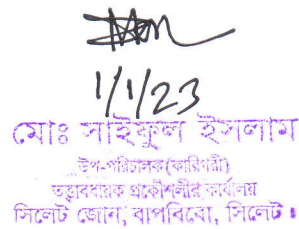 1/1/23
মোঃ সাইফুল ইসলাম
উপ-পরিচালক(কারিগরী)
তত্ত্বাবধায়ক প্রকৌশলীর কার্যালয়
সিলেট জোন, বাপবিবো, সিলেট।